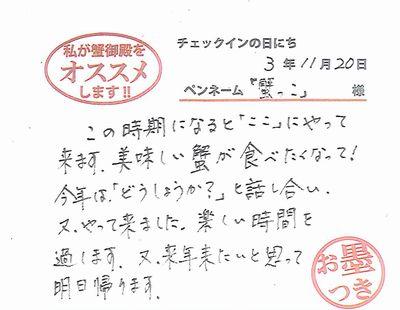 私が蟹御殿を
オススメ
します!!
チェックインの日にち
3年11月20日
ペンネーム『蟹っこ』様
この時期になると「ここ」にやって
来ます。美味しい蟹が食べたくなって!
今年は、「どうしようか?」と話し合い、
又、やって来ました。楽しい時間を
過します。又、来年来たいと思って
明日帰ります。
お墨
つき